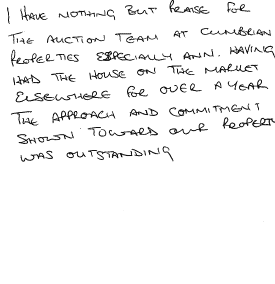 I HAVE NOTHING BUT PRAISE FOR
THE AUCTION TEAM AT CUMBRIAN
PROPERTIES ESPECIALLY ANN. HAVING
HAD THE HOUSE ON THE MARKET
ELSEWHERE FOR OVER A YEAR
THE APPROACH AND COMMITMENT
SHOWN TOWARD OUR PROPERTY
WAS OUTSTANDING